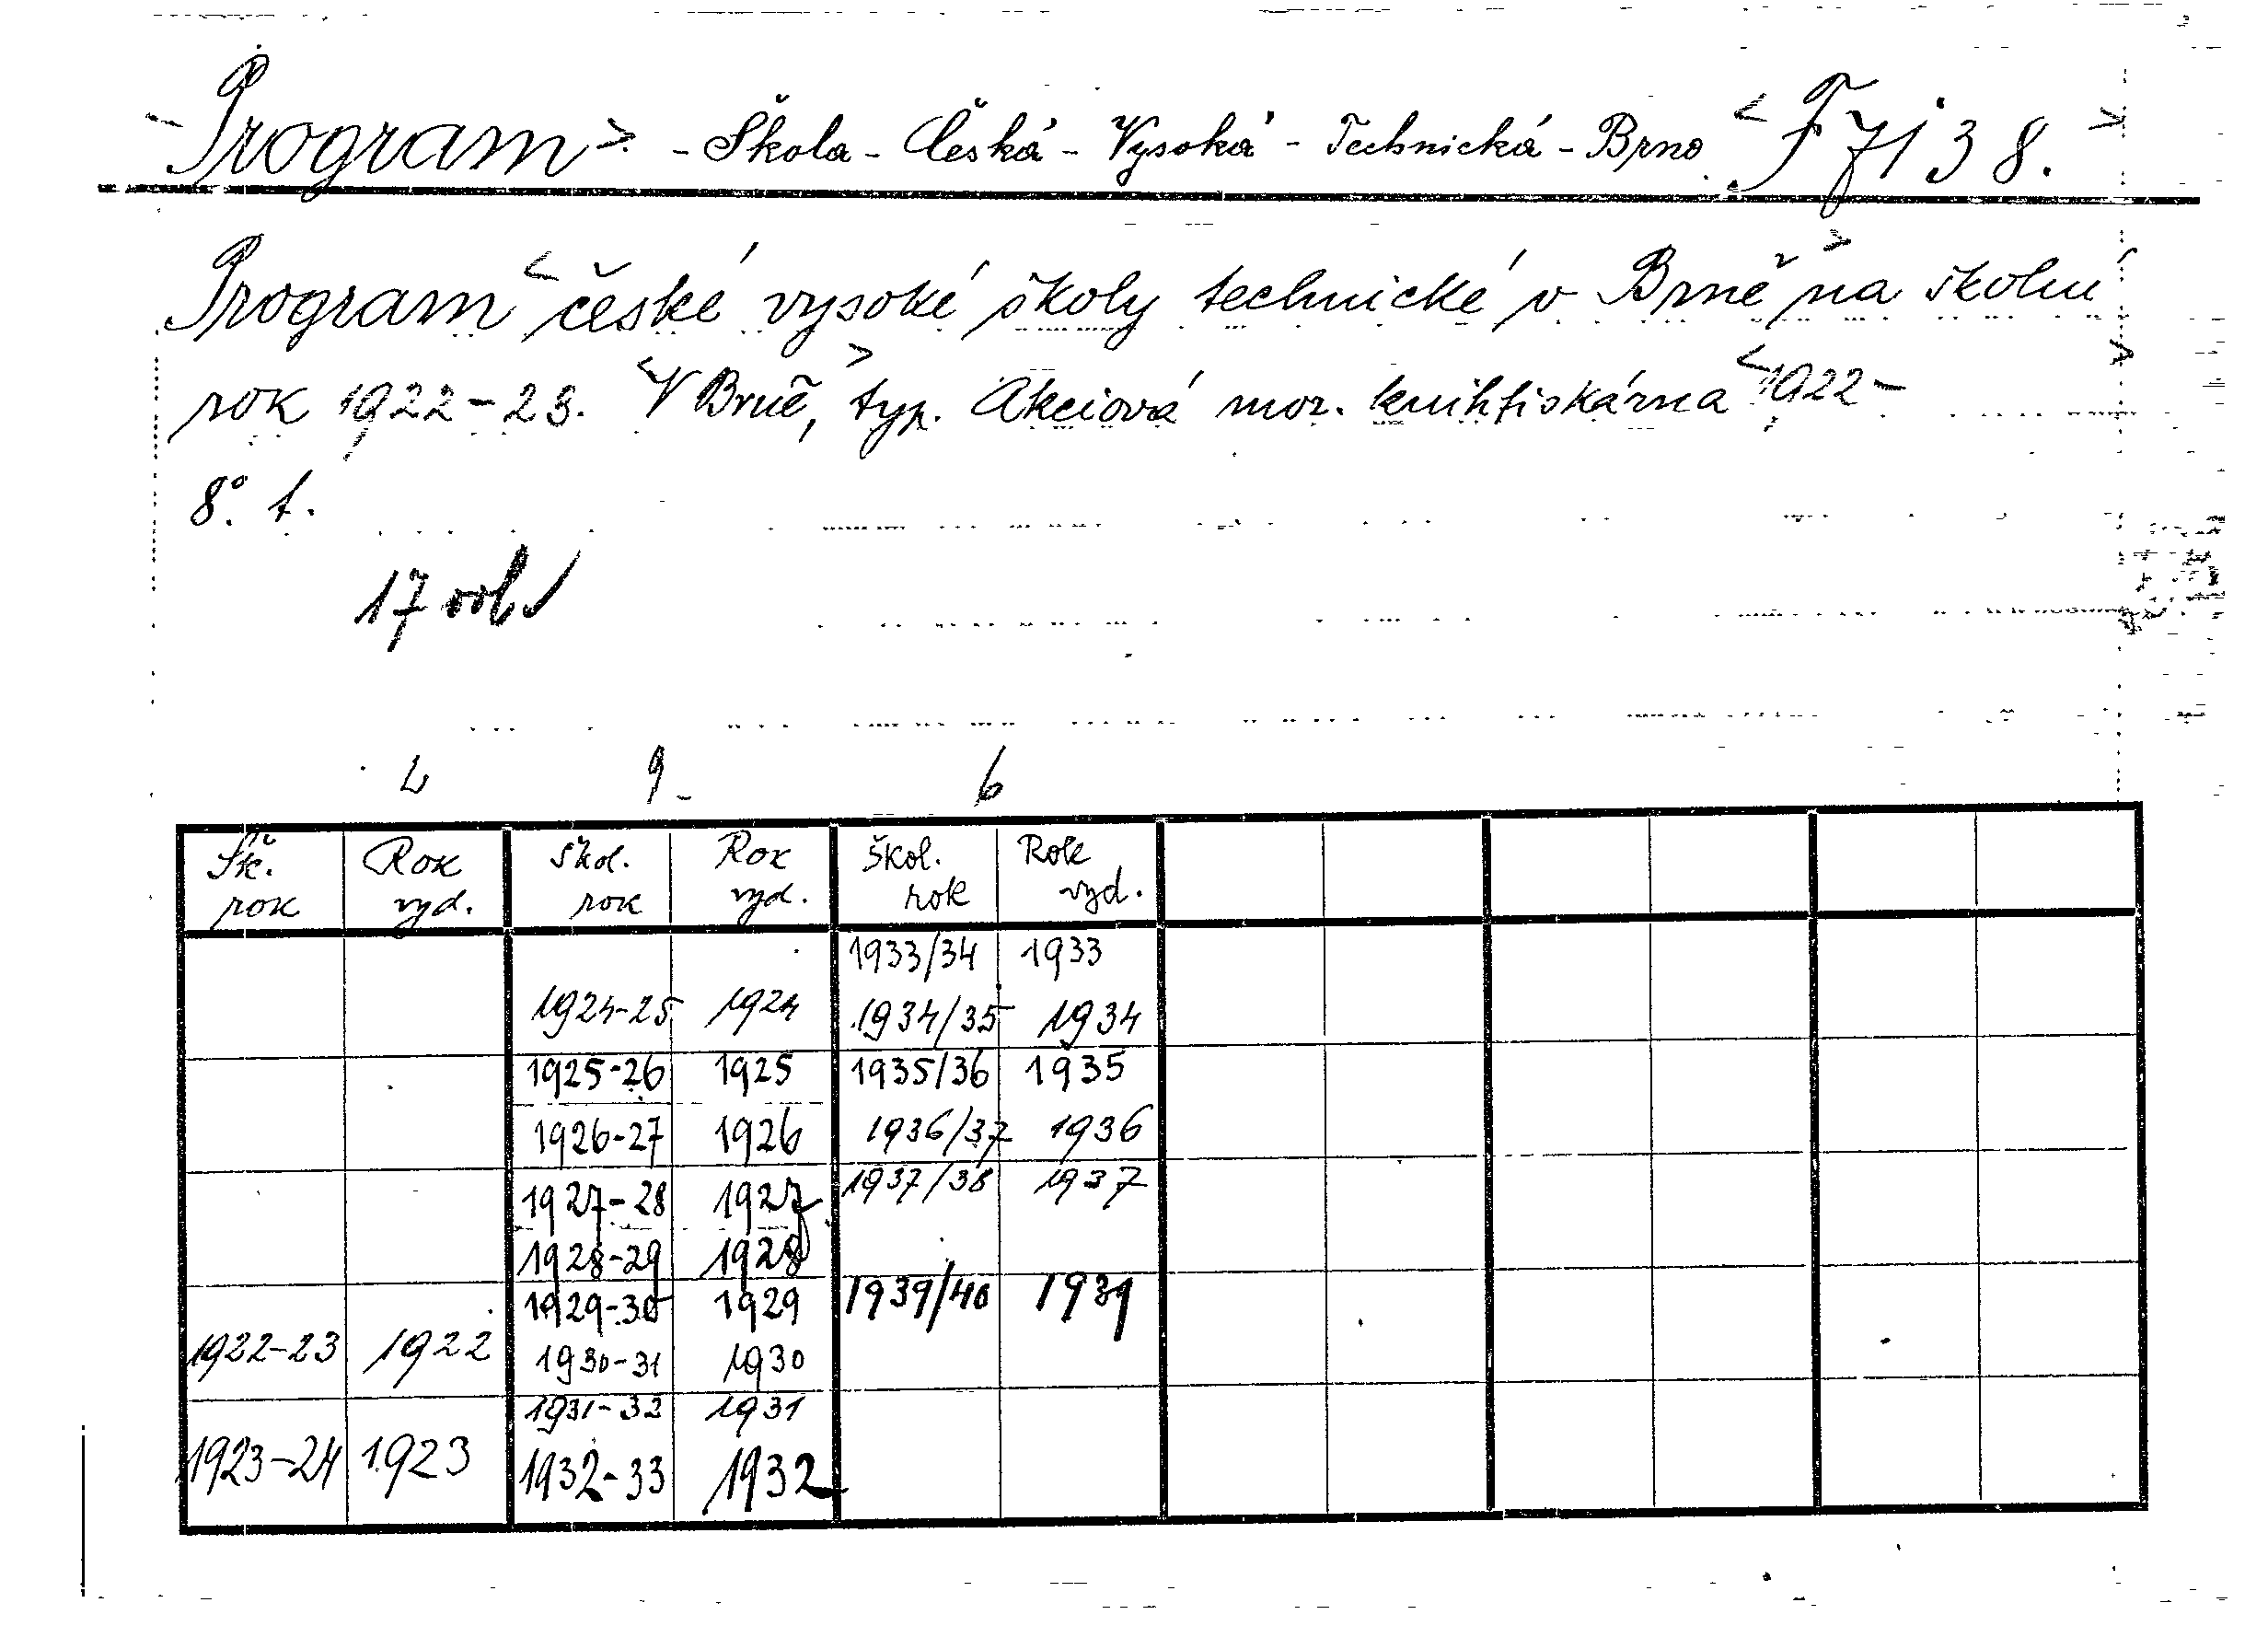 Program> - Škola - Česká - Vysoká - Technická - Brno <F 7138.>
Program <české vysoké školy technické v Brně> na školní
rok 1922-23. <V Brně,> typ. Akciová mor. knihtiskárna <1922->
8°. t.
17
9 - 6
Šk. rok Rok vyd. Škol. rok Rok vyd. Škol. rok Rok vyd.
1933/34 1933
1924-25 1924 1934/35 1934
1925-26 1925 1935/36 1935
1926-27 1926 1936/37 1936
1927-28 1927 1937/38 1937
1928-29 1928
1929-30 1929 1939/40 1939
1922-23 1922 1930-31 1930
1931-32 1931
1923-24 1923 1932-33 1932